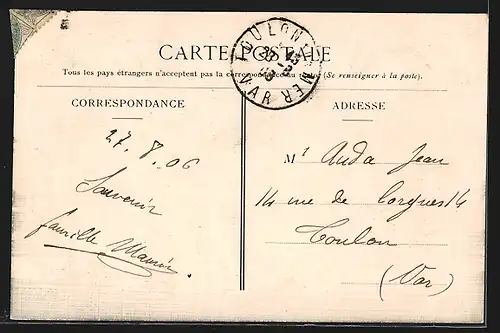 CARTE POSTALE
Tous les pays étrangers n'acceptent pas la correspondance au (Se renseigner à la poste).
TOULON-S-MER
VAR
CORRESPONDANCE
ADRESSE
27.8.06
Souvenir
famille
Mr Auda Jean
14 rue de Lorgues 14
Toulon
(Var)